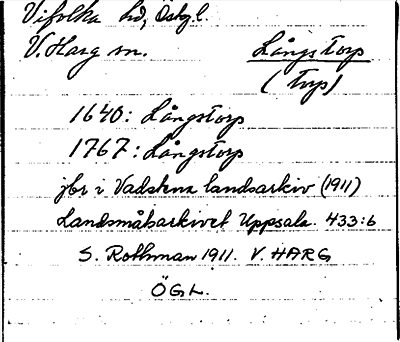 Vifolka hd, Östgl.
V. Harg sn. Långstorp
(Torp)
1640: Långstorp
1767: Långstorp
jbr i Vadstena landsarkiv (1911)
Landsmålsarkivet Uppsala. 433:6
S. Rothman 1911. V. HARG
ÖGL.